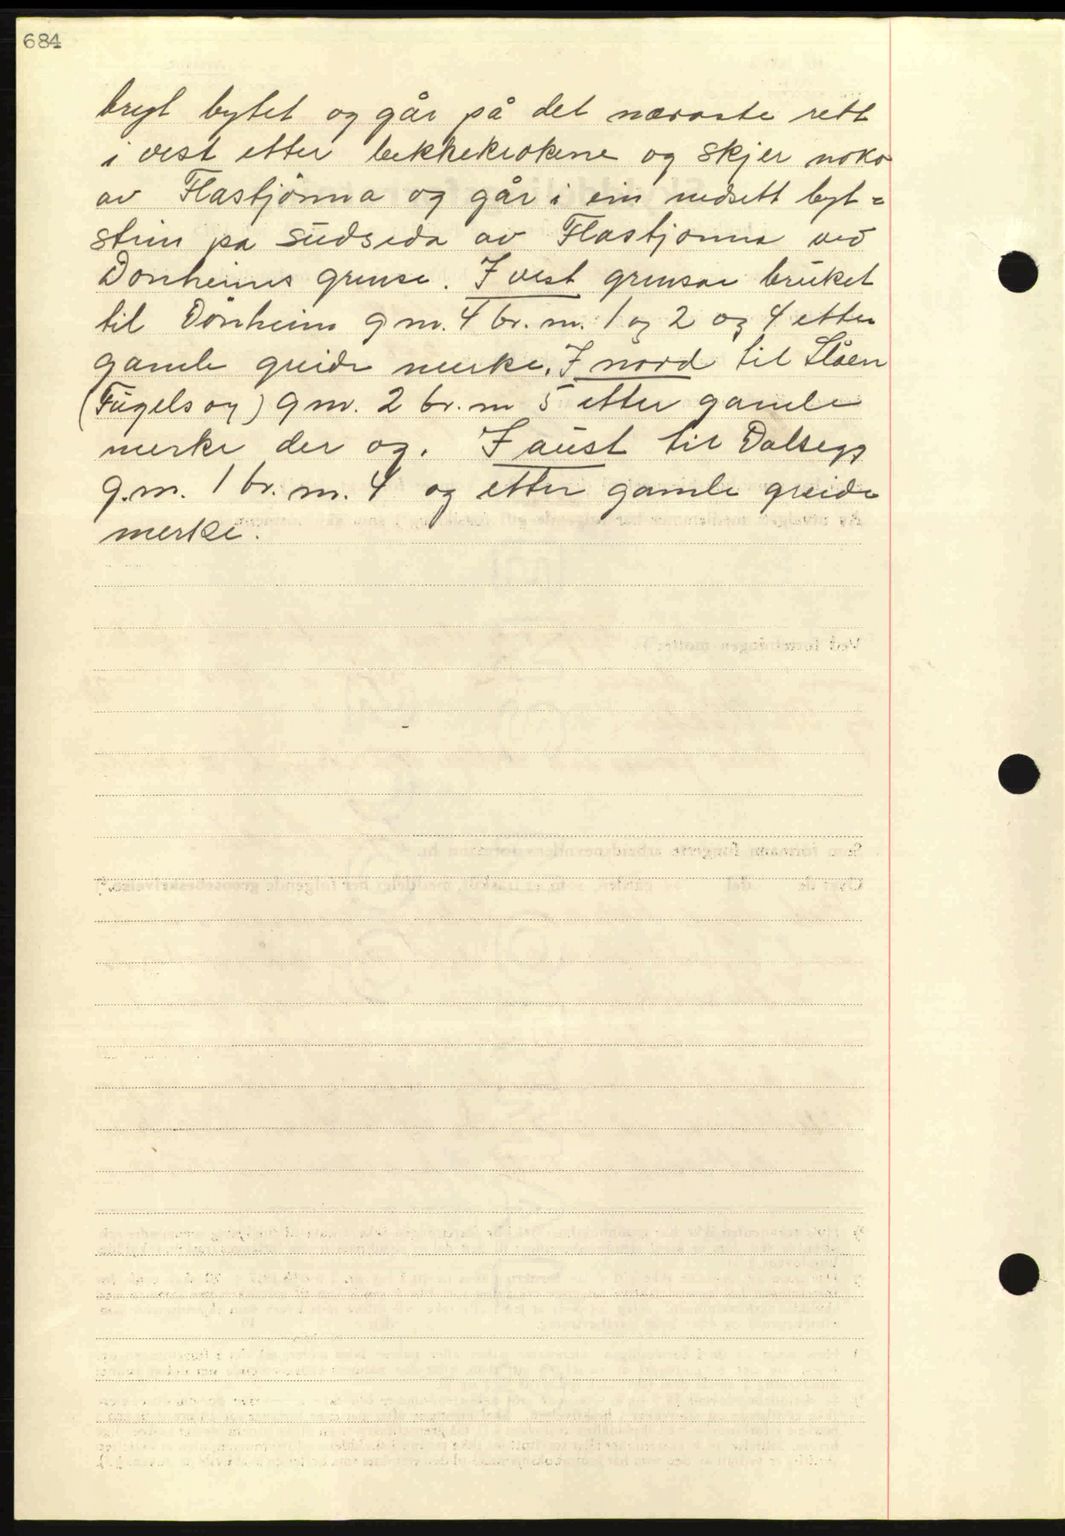 684
bryt bytet og går på det næraste rett
i vest etter bekkekrokene og skjer noko
av Flastjønna og går i ein nedsett byt=
stein på südsida av Flastjonna ved
Dønheims grense. I vest grensar brüket
til Dønheim g.nr. 4 br.nr. 1 og 2 og 4 etter
gamle greide merke. I nord til Slåen
(Fügelsøy) g nr. 2 br. nr 5 etter gamle
merke der og. I aüst til Dalsegg
g.nr. 1 br.nr. 4 og etter gamle greide
merke.